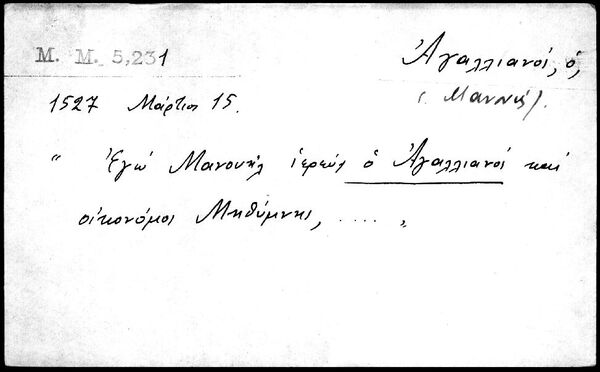 M. M. 5,231
Ἀγαλλιανός, ὁ,
1527 Μάρτιος 15.
" Ἐγὼ Μανουὴλ ἱερεὺς ὁ Ἀγαλλιανός καὶ
οἰκονόμος Μηθύμνης, ..... "